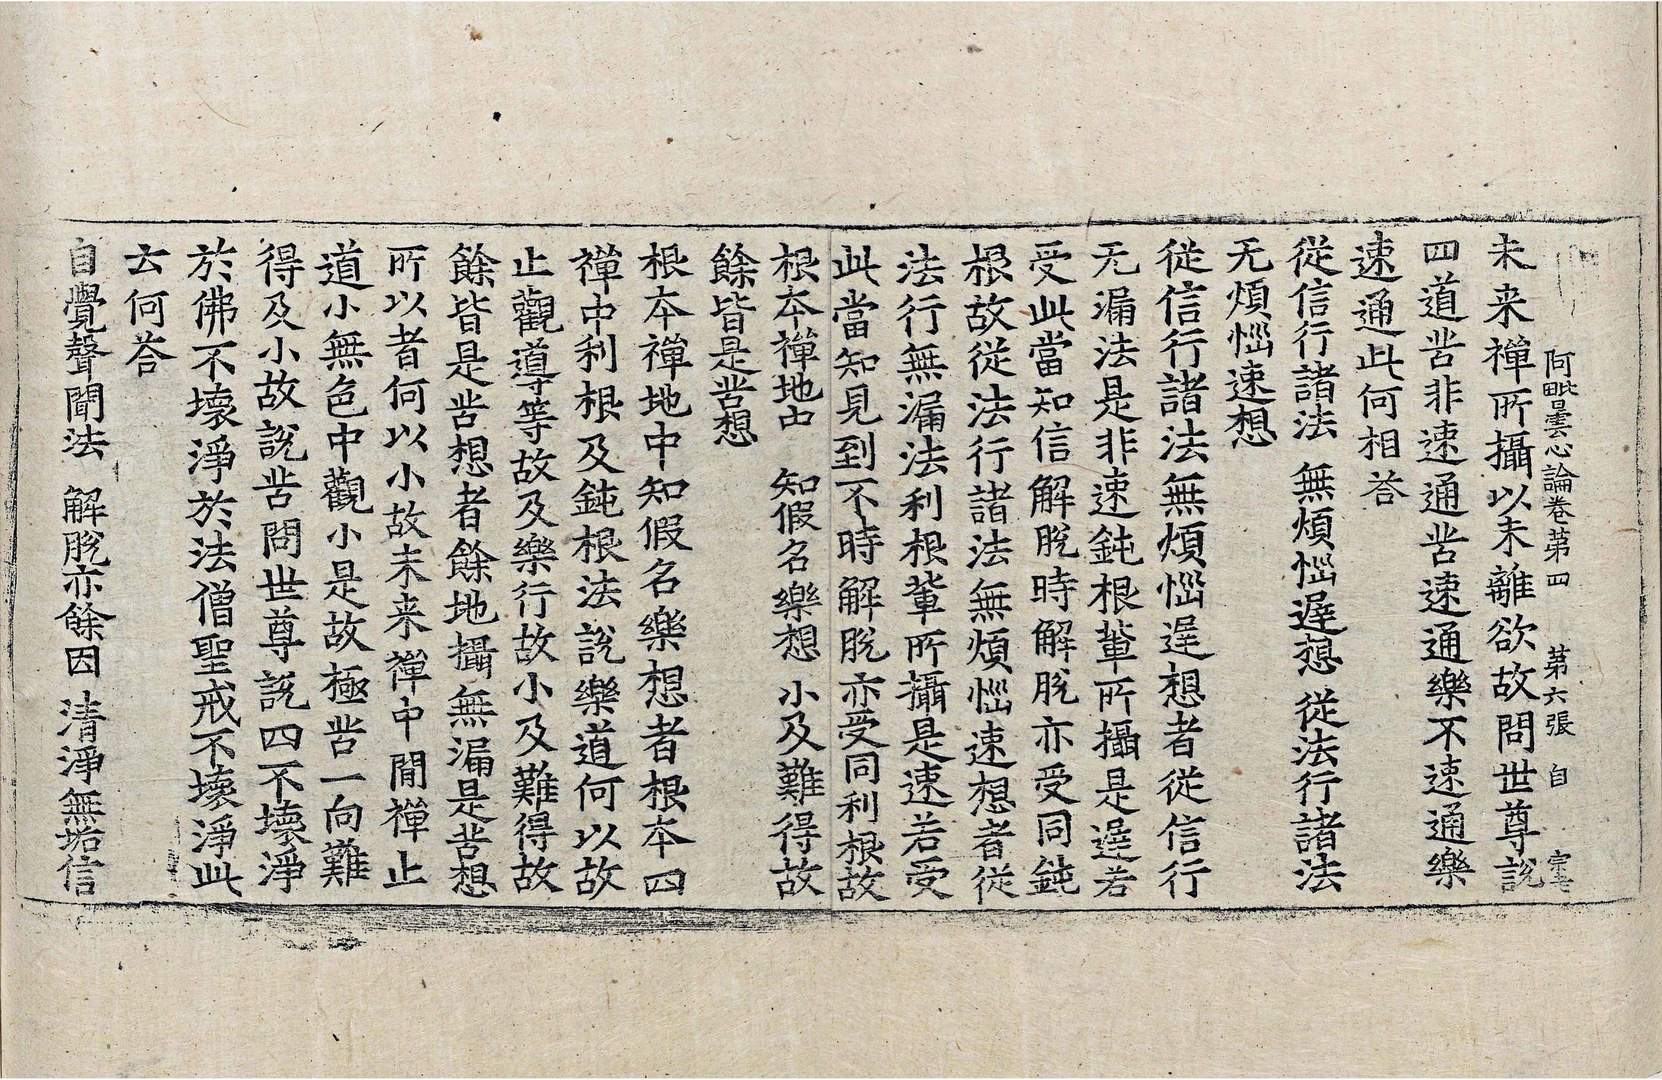 阿毗曇心論卷第四 第六張 自
未来禪所攝以未離欲故問世尊說
四道苦非速通苦速通樂不速通樂
速通此何相荅
從信行諸法 無煩惱遲想 從法行諸法
无煩惱速想
從信行諸法無煩惱遲想者從信行
无漏法是非速鈍根軰所攝是遲若
受此當知信解脫時解脫亦受同鈍
根故從法行諸法無煩惱速想者從
法行無漏法利根軰所攝是速若受
此當知見到不時解脫亦受同利根故
根本禪地中 知假名樂想 小及難得故
餘皆是苦想
根本禪地中知假名樂想者根本四
禪中利根及鈍根法說樂道何以故
止觀導等故及樂行故小及難得故
餘皆是苦想者餘地攝無漏是苦想
所以者何以小故未来禪中間禪止
道小無色中觀小是故極苦一向難
得及小故說苦問世尊說四不壞淨
於佛不壞淨於法僧聖戒不壞淨此
云何荅
自覺聲聞法 解脫亦餘因 清淨無垢信